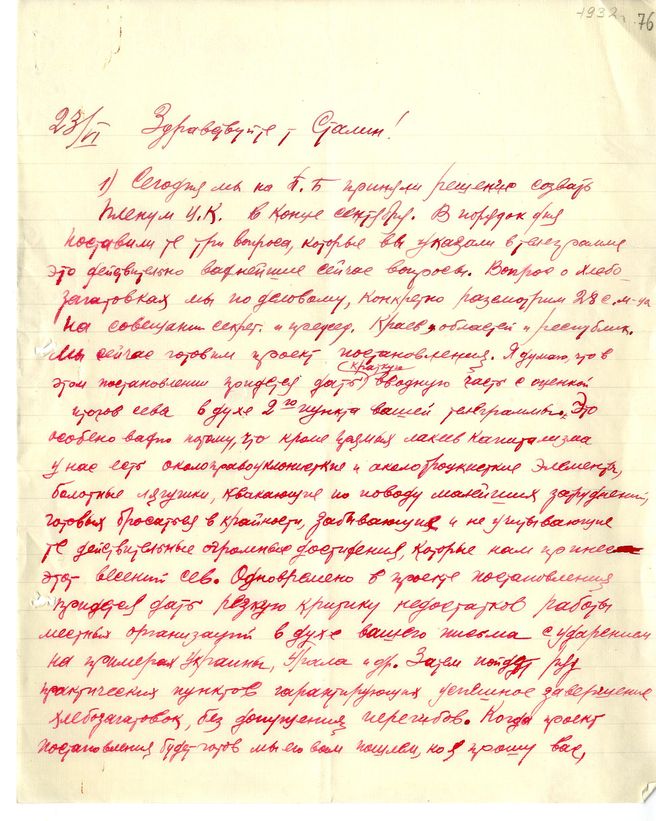 1932 г. 76
23/VI Здравствуйте т Сталин!
1) Сегодня мы на П.Б приняли решение созвать
Пленум Ц.К. в конце сентября. В порядок дня
поставили те три вопроса, которые вы указали в телеграмме
это действительно важнейшие сейчас вопросы. Вопрос о хлебо-
заготовках мы по деловому, конкретно рассмотрим 28 с.м-ца
на совещании секрет. и председ. Краев, областей и республик.
Мы сейчас готовим проект постановления. Я думаю, что в
краткую
этом постановлении придется дать вводную часть с оценкой
итогов сева в духе 2го пункта вашей телеграммы. Это
особено важно потому, что кроме прямых капитализма
у нас есть околоправоуклонисткие и околотроцкисткие элементы,
болотные лягушки, квакающие по поводу малейших затруднений,
готовых бросаться в крайности, забывающие и не учитывающие
те действительные огромные достижения, которые нам принес
этот весений сев. Одновремено в проекте постановления
придется дать резкую критику недостатков работы
местных организаций в духе вашего письма с ударением
на примерах Украины, Урала и др. Затем пойдут ряд
практических пунктов гарантирующих успешное завершение
хлебозаготовок, без допущения перегибов. Когда проект
постановления будет готов мы его вам пошлем, но я прошу вас,